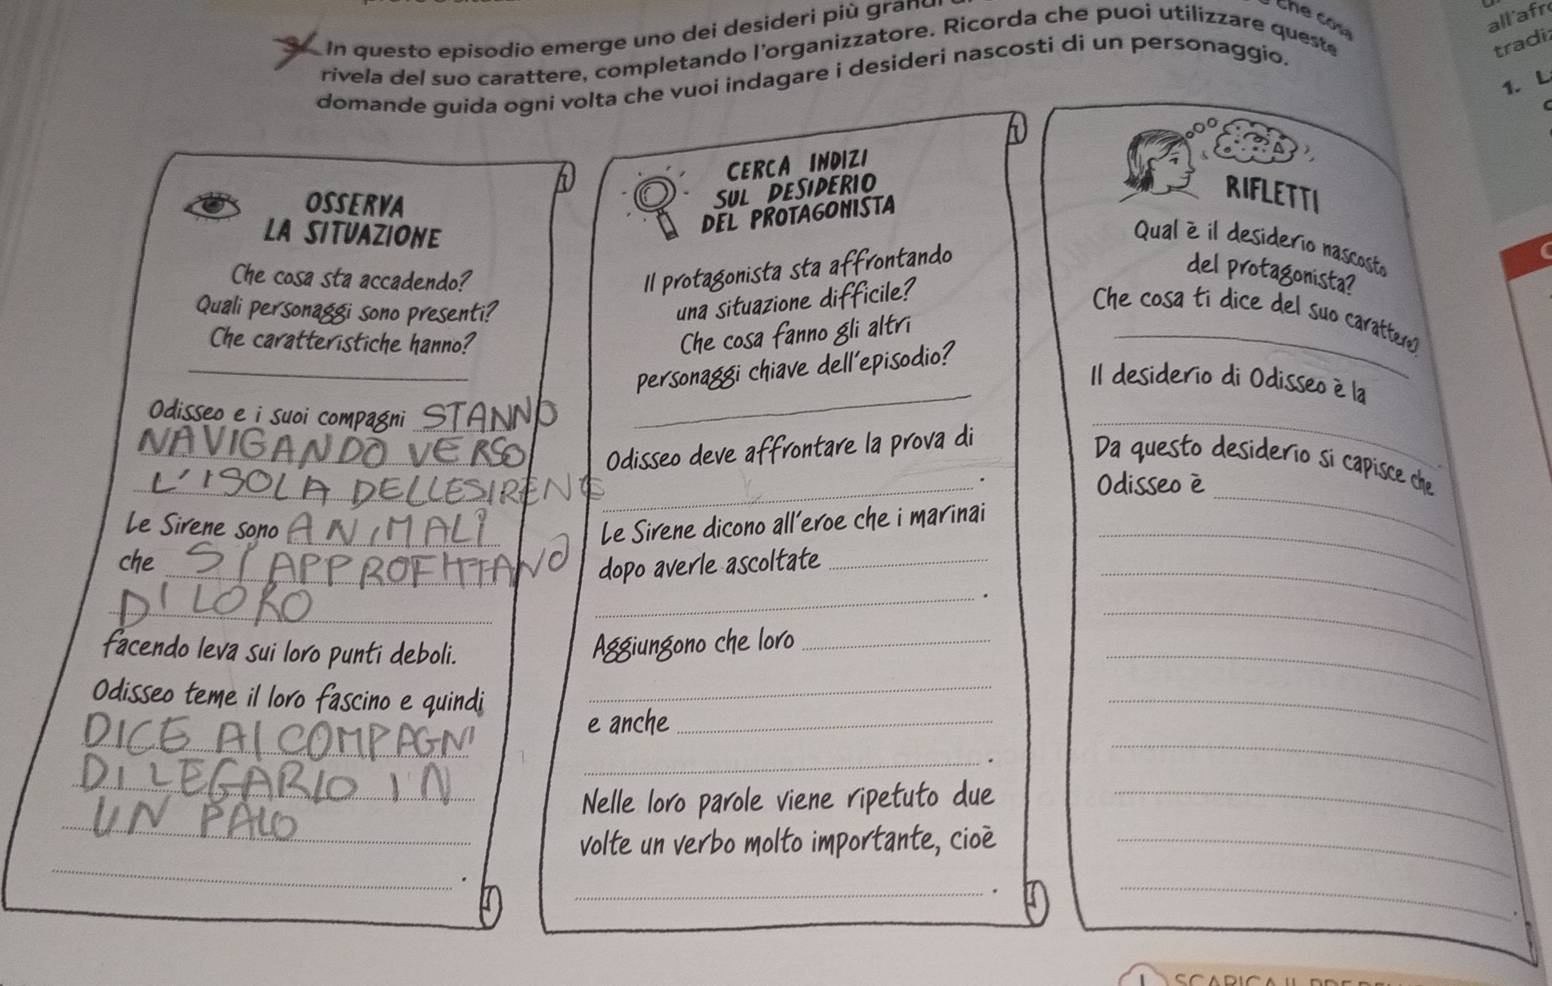 che cosa
In questo episodio emerge uno dei desideri più
rivela del suo carattere, completando l'organizzatore. Ricorda che puoi utilizzare queste
domande guida ogni volta che vuoi indagare i desideri nascosti di un personaggio.
all'afr
tradi
1. L
OSSERVA
LA SITUAZIONE
Che cosa sta accadendo?
Quali personaggi sono presenti?
Che caratteristiche hanno?
Odisseo e i suoi compagni STANNO
NAVIGANDO VERSO
L'ISOLA DELLESIRENE
Le Sirene sono ANIMALI
che SI APPROFITTANO
DI LORO
facendo leva sui loro punti deboli.
Odisseo teme il loro fascino e quindi
DICE AI COMPAGNI
DI LEGARLO IN
UN PALO
.
CERCA INDIZI
SUL DESIDERIO
DEL PROTAGONISTA
Il protagonista sta affrontando
una situazione difficile?
Che cosa fanno gli altri
personaggi chiave dell'episodio?
Odisseo deve affrontare la prova di
.
Le Sirene dicono all'eroe che i marinai
dopo averle ascoltate
.
Aggiungono che loro
e anche
.
Nelle loro parole viene ripetuto due
volte un verbo molto importante, cioè
.
RIFLETTI
Qual è il desiderio nascosto
del protagonista?
Che cosa ti dice del suo carattere?
Il desiderio di Odisseo è la
Da questo desiderio si capisce che
Odisseo è
.